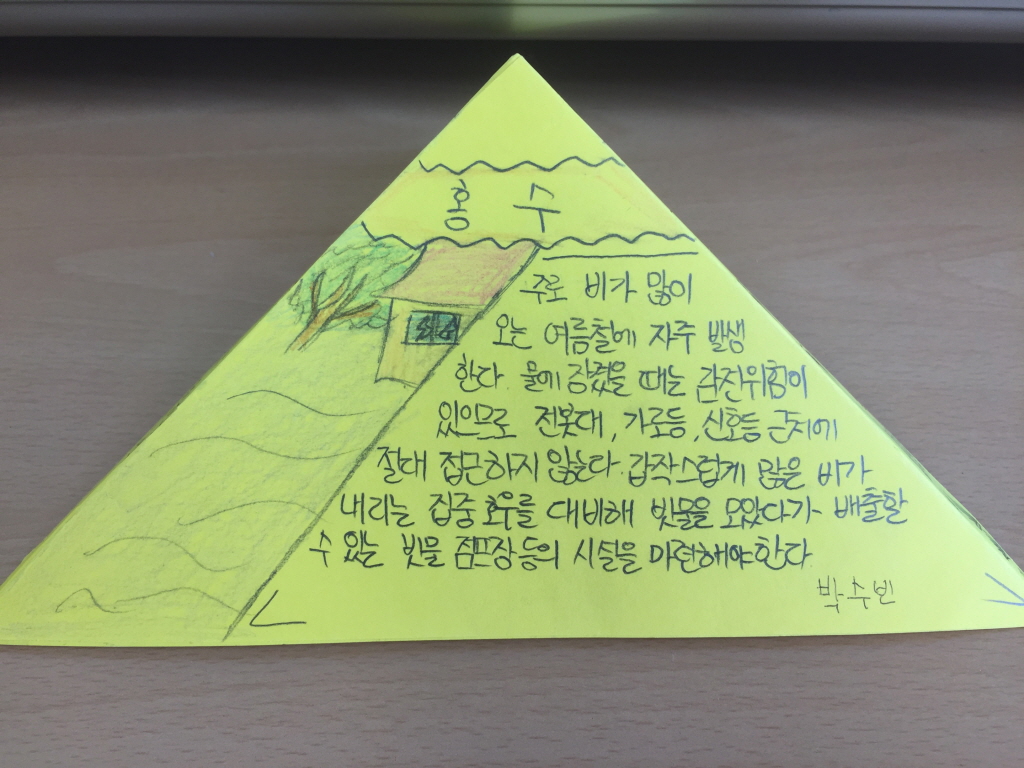 홍수
주로 비가 많이
오는 여름철에 자주 발생
한다. 물에 잠겼을 때는 감전위험이
있으므로 전봇대, 가로등, 신호등 근처에
절대 접근하지 않는다. 갑작스럽게 많은 비가
내리는 집중 호우를 대비해 빗물을 모았다가 배출할
수 있는 빗물 펌프장 등의 시설을 마련해야한다.
박수빈